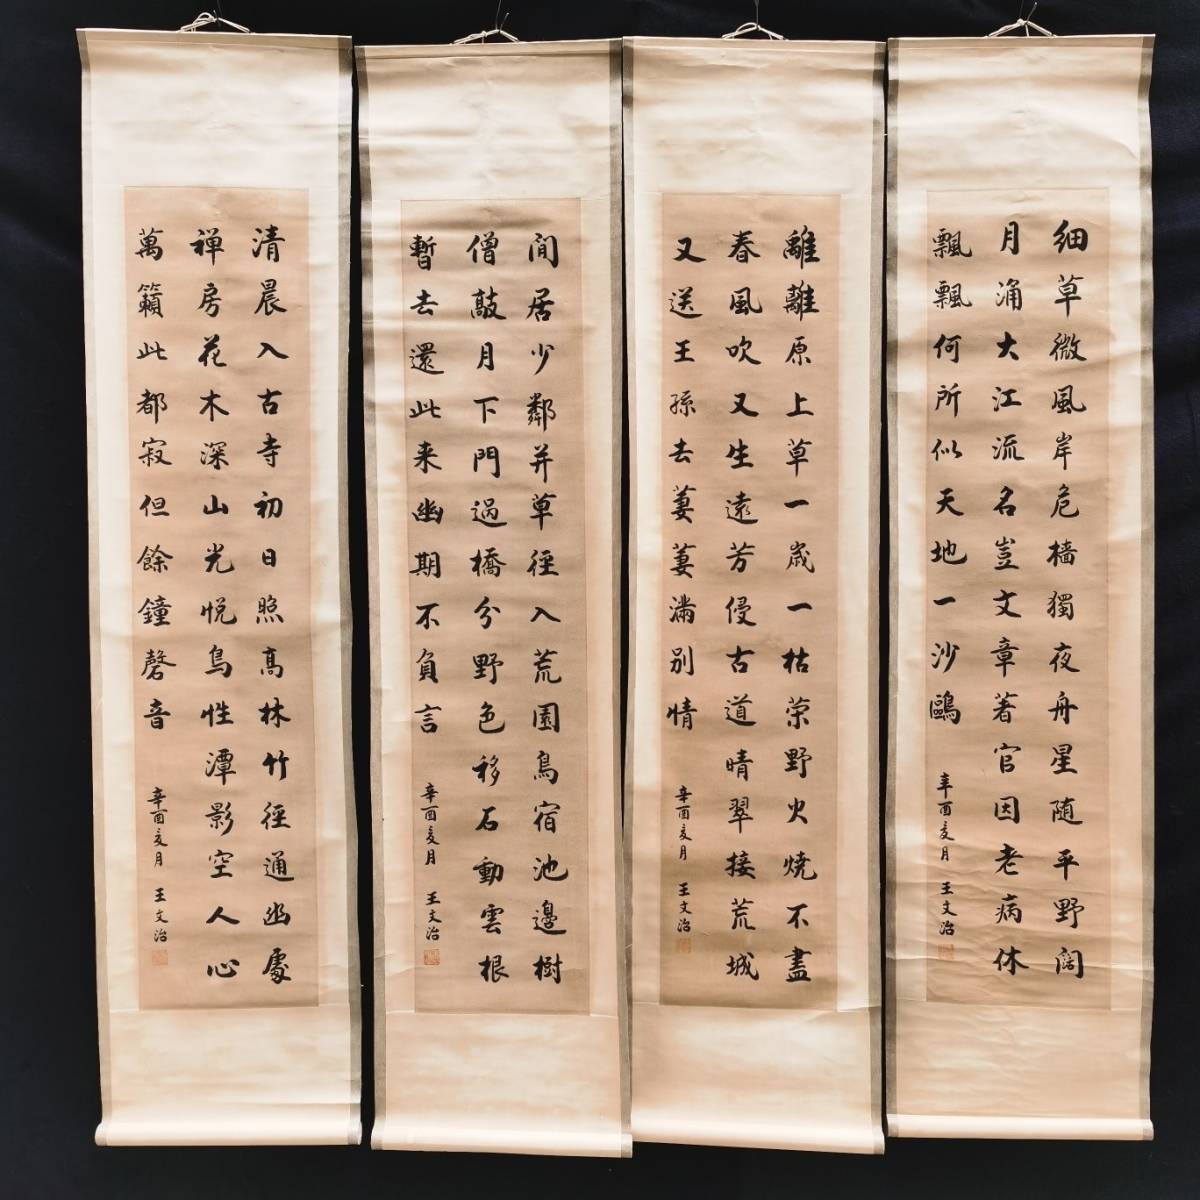 細草微風岸危檣獨夜舟星随平野闊
月涌大江流名豈文章著官因老病休
飄飄何所似天地一沙鷗
辛酉亥月 王文治
離離原上草一歲一枯榮野火燒不盡
春風吹又生遠芳侵古道晴翠接荒城
又送王孫去萋萋滿別情
辛酉亥月 王文治
閒居少鄰并草徑入荒園鳥宿池邊樹
僧敲月下門過橋分野色移石動雲根
暫去還此来幽期不負言
辛酉亥月 王文治
清晨入古寺初日照髙林竹徑通幽處
禅房花木深山光悅鳥性潭影空人心
萬籟此都寂但餘鐘磬音
辛酉亥月 王文治